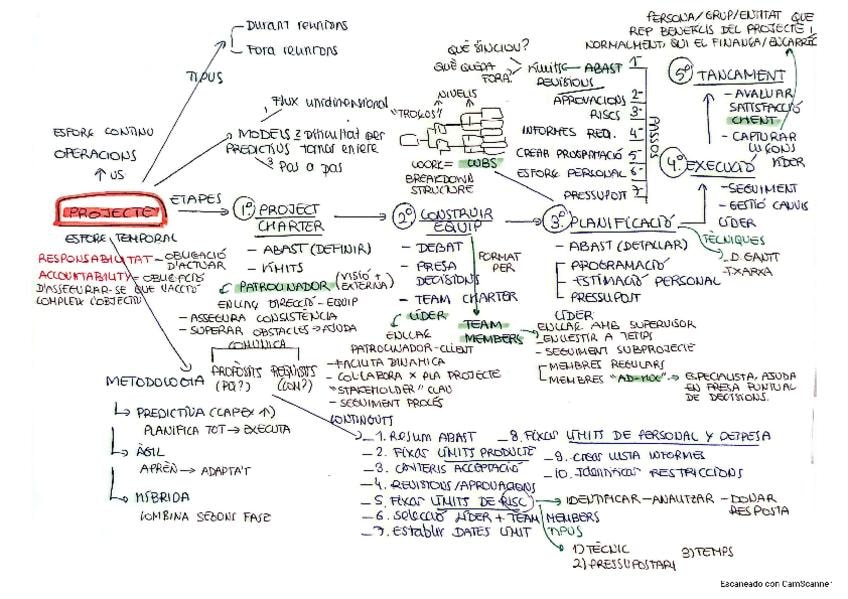 Durant reunions
Fora reunions
TIPUS
PERSONA/GRUP/ENTITAT QUE
REP BENEFICIS DEL PROJECTE,
NORMALMENT, QUI EL FINANÇA/ENCARREC
QUÈ S'INCLOU?
QUÈ QUEDA
FORA?
Límits
ABAST 1
REVISIONS
APROVACIONS 2
RISCS 3
INFORMES REQ. 4
CREAR PROGRAMACIÓ 5
ESFORÇ PERSONAL 6
PRESSUPOST 7
PASSOS
5º TANCAMENT
- AVALUAR
SATISFACCIÓ
CLIENT
- CAPTURAR
LLIÇONS
LÍDER
4º EXECUCIÓ
- SEGUIMENT
- GESTIÓ CANVIS
LÍDER
NIVELLS
"TROÇOS"
WORK = WBS
BREAKDOWN
STRUCTURE
1 Flux unidimensional
MODELS 2 Dificultat per
PREDICTIUS tornar enrere
3 Pas a pas
ESFORÇ CONTINU
OPERACIONS
VS
PROJECTE
ETAPES
ESFORÇ TEMPORAL
RESPONSABILITAT - OBLIGACIÓ
D'ACTUAR
ACCOUNTABILITY - OBLIGACIÓ
D'ASSEGURAR-SE QUE L'ACCIÓ
COMPLEIX L'OBJECTIU
1º PROJECT
CHARTER
- ABAST (DEFINIR)
- LÍMITS
- PATROCINADOR (VISIÓ +
EXTERNA)
ENLLAÇ DIRECCIÓ - EQUIP
- ASSEGURA CONSISTÈNCIA
- SUPERAR OBSTACLES → AJUDA
COMUNICA
PROPÒSITS REQUISITS
(PQ?) (COM?)
2º CONSTRUIR
EQUIP
- DEBAT
- PRESA
DECISIONS
- TEAM CHARTER
FORMAT
PER
LÍDER
ENLLAÇ
PATROCINADOR-CLIENT
- FACILITA DINÀMICA
- COL·LABORA X PLA PROJECTE
- "STAKEHOLDER" CLAU
- SEGUIMENT PROCÉS
TEAM
MEMBERS
3º PLANIFICACIÓ
- ABAST (DETALLAR)
- PROGRAMACIÓ
- ESTIMACIÓ PERSONAL
- PRESSUPOST
LÍDER
TÈCNIQUES
- D. GANTT
- T.XARXA
- ENLLAÇ AMB SUPERVISOR
- SEGUIMENT SUBPROJECTE
- MEMBRES REGULARS
- MEMBRES "AD-HOC" → ESPECIALISTA, AJUDA
EN PRESA PUNTUAL
DE DECISIONS.
METODOLOGIA
PREDICTIVA (CAPEX ↑)
PLANIFICA TOT → EXECUTA
ÀGIL
APRÈN → ADAPTA'T
HÍBRIDA
COMBINA SEGONS FASE
CONTINGUTS
1. Resum ABAST
2. Fixar LÍMITS PRODUCTE
3. CRITERIS ACCEPTACIÓ
4. REVISIONS/APROVACIONS
5. Fixar LÍMITS DE RISC → IDENTIFICAR - ANALITZAR - DONAR
RESPOSTA
6. Selecció LÍDER + TEAM MEMBERS
7. Establir DATES LÍMIT
8. Fixar LÍMITS DE PERSONAL Y DESPESA
9. Crear LLISTA INFORMES
10. Identificar RESTRICCIONS
TIPUS
1) TÈCNIC
2) PRESSUPOSTARI
3) TEMPS
Escaneado con CamScanner